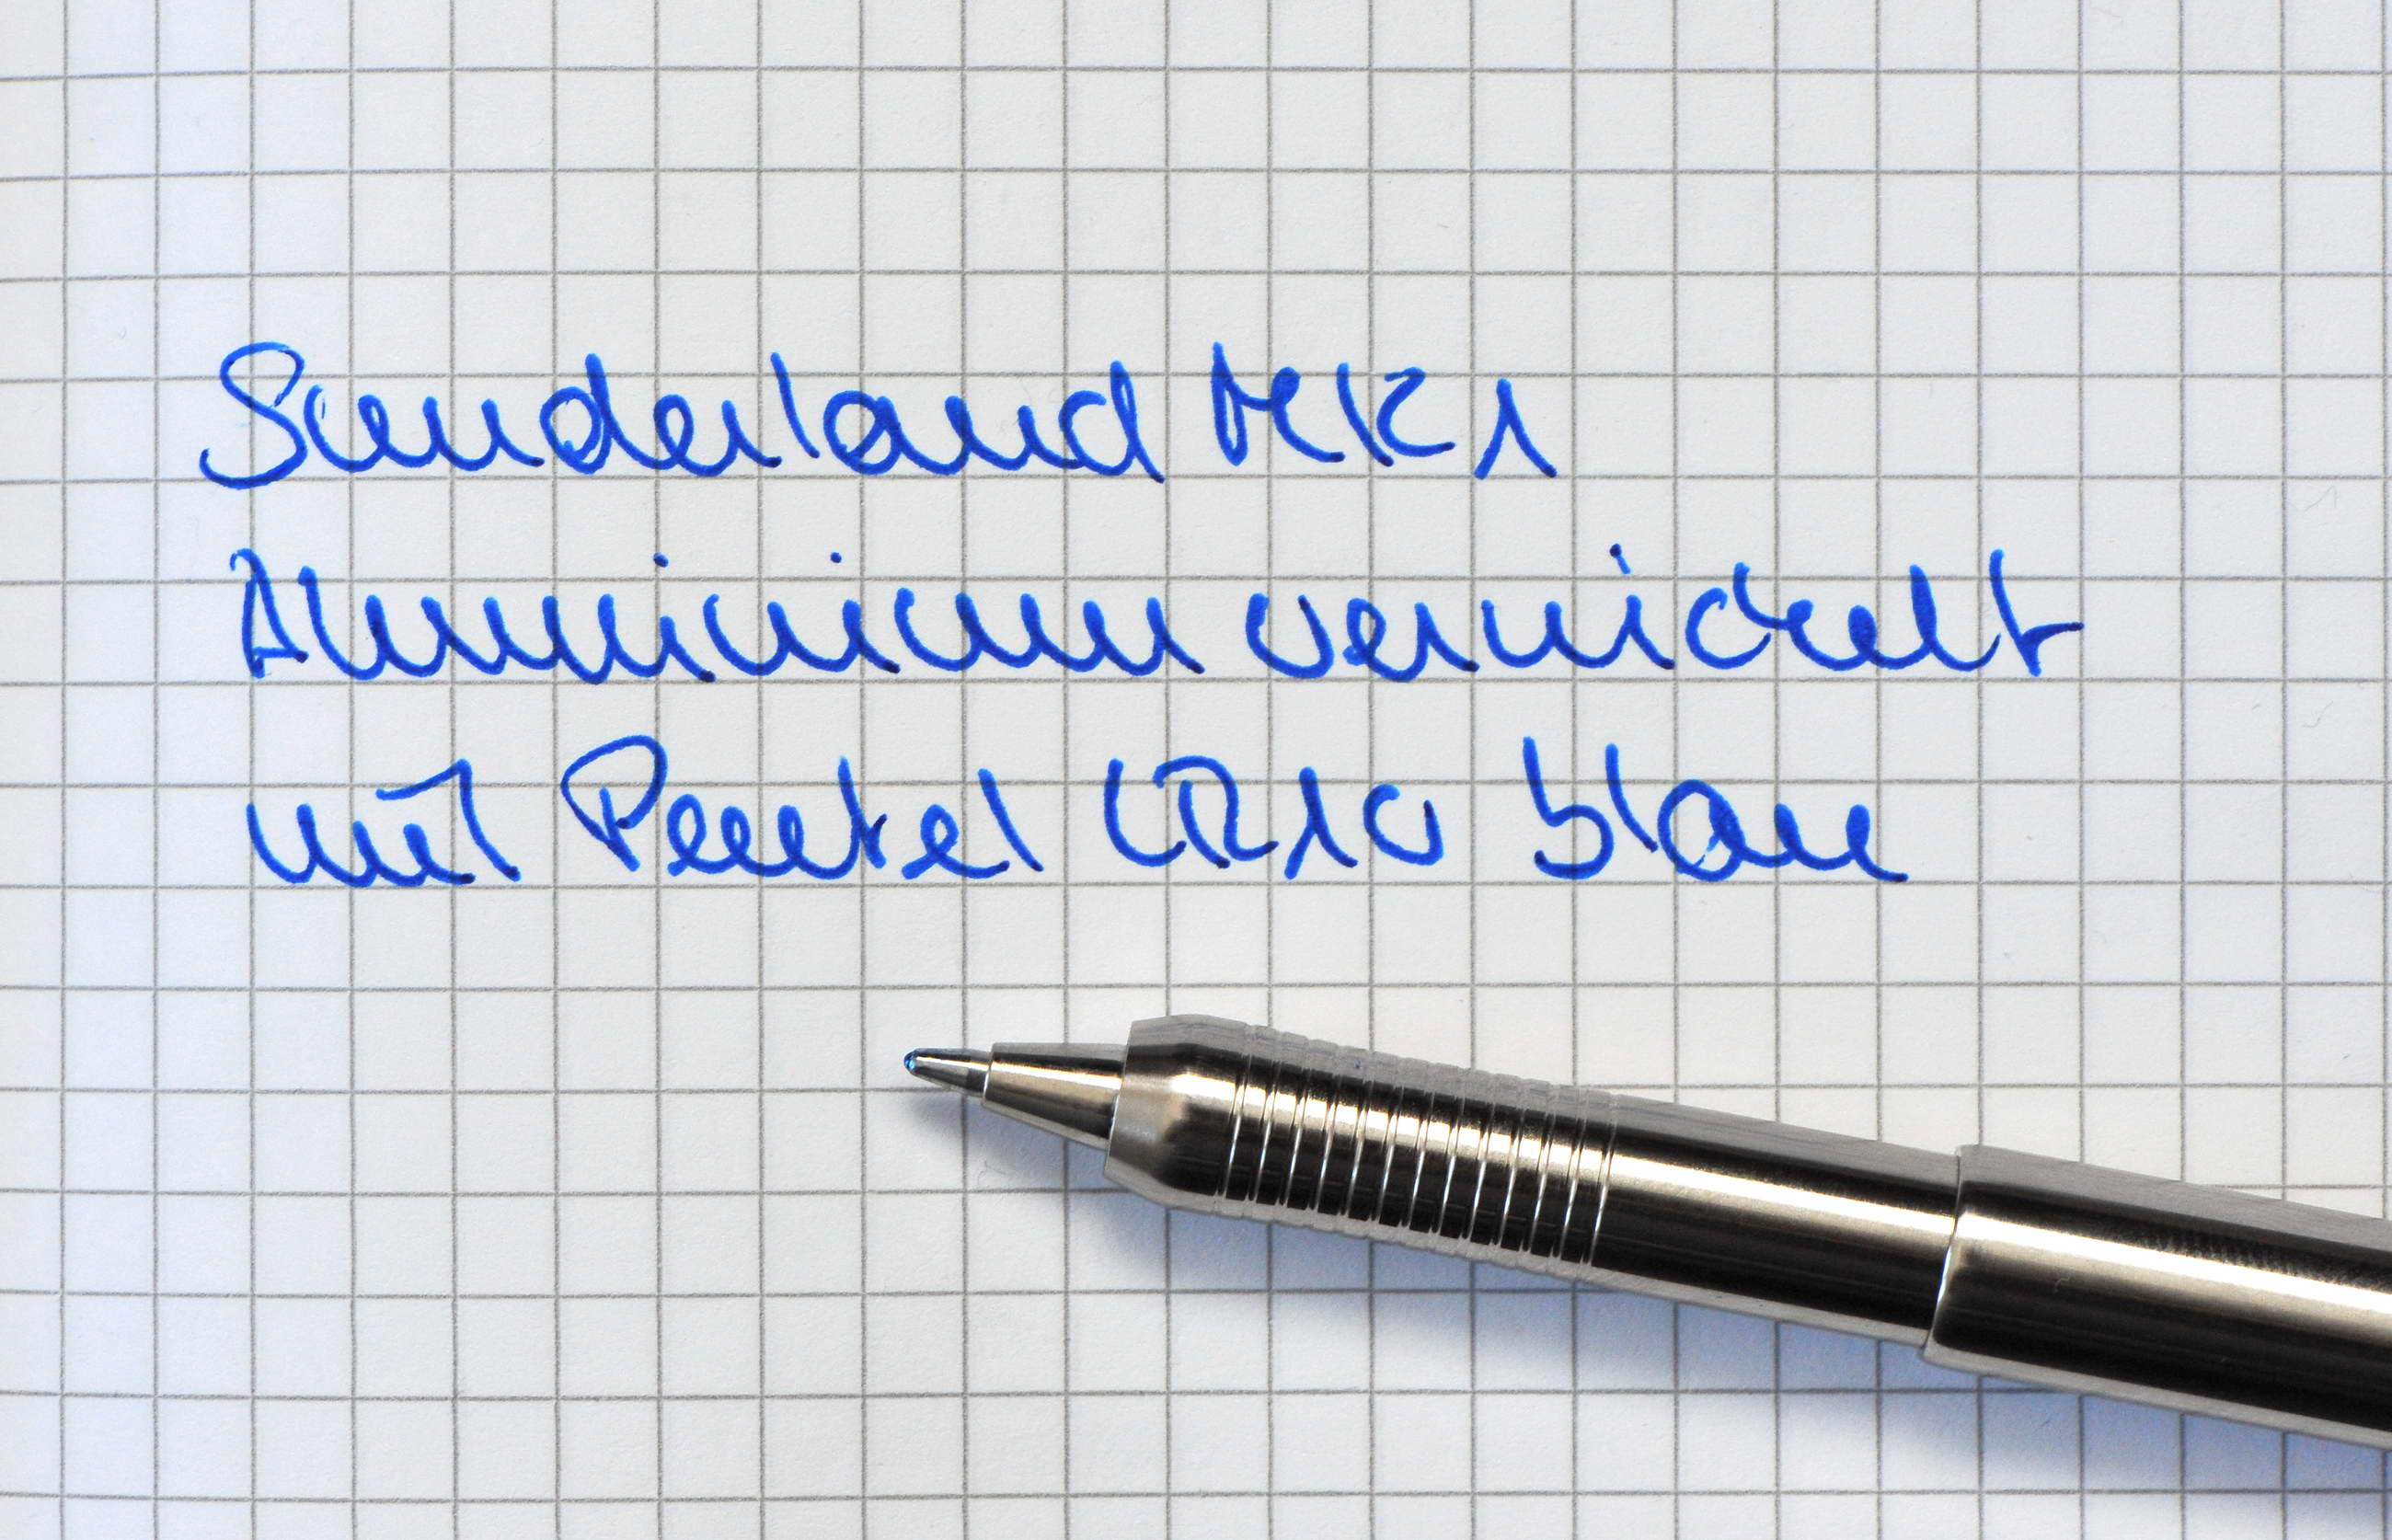 Sunderland MK1
Aluminium vernickelt
mit Pentel LR10 blau